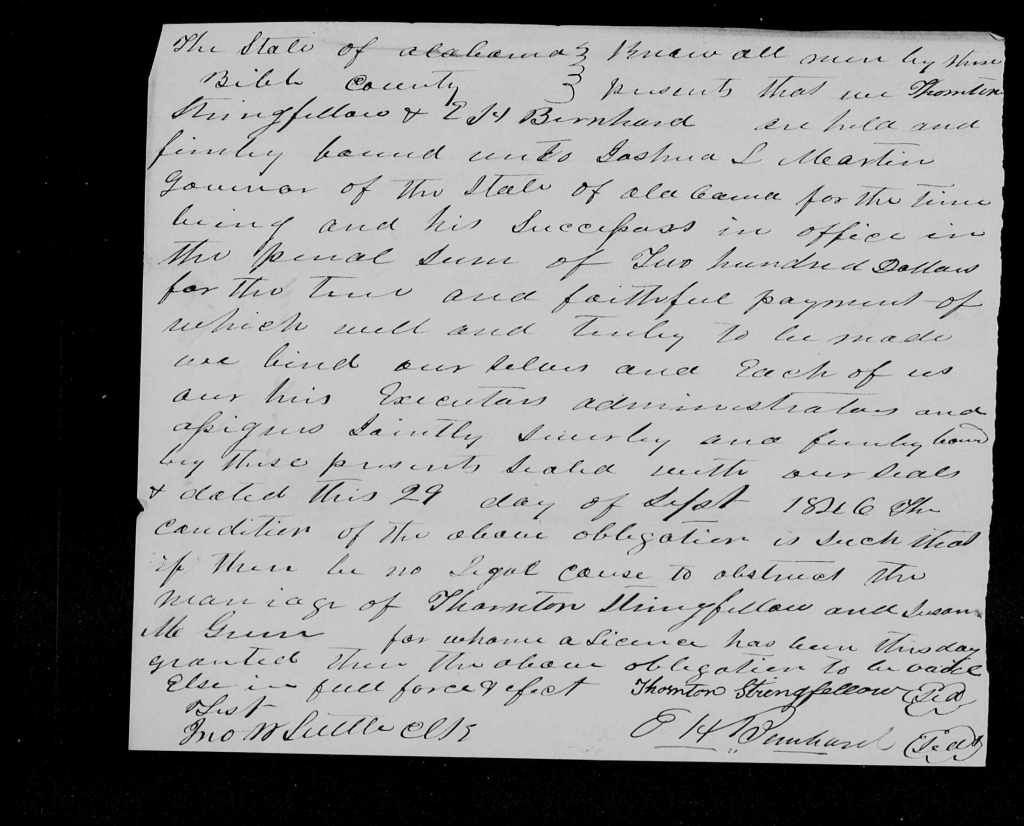 The State of Alabama } Know all men by these
Bibb County } presents that we Thornton
Stringfellow & E H Bernhard are held and
firmly bound unto Joshua L Martin
Govenor of the State of Alabama for the time
being and his Successors in office in
the penal sum of Two hundred Dollars
for the true and faithful payment of
which well and truly to be made
we bind our selves and Each of us
our heirs Executors administrators and
assigns Jointly severly and firmly bound
by these presents sealed with our seals
& dated this 29 day of Sept 1846 The
condition of the above obligation is such that
if there be no legal cause to obstruct the
marriage of Thornton Stringfellow and Susan
M Green for whome a Licence has been this day
granted then the above obligation to be void
Else in full force & efect Thornton Stringfellow
Test
Jno W Suttle Clk E H Bernhard